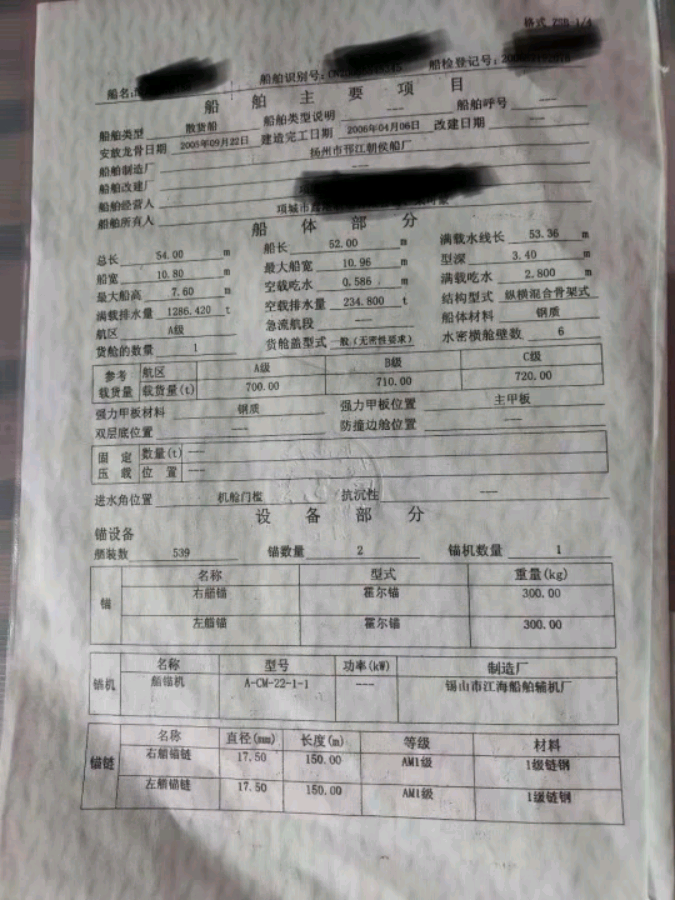 格式 ZSB 1/4
船名: 船舶识别号: 船检登记号:
船舶主要项目
船舶类型 散货船 船舶类型说明 --- 船舶呼号 ---
安放龙骨日期 2005年09月22日 建造完工日期 2006年04月06日 改建日期 ---
船舶制造厂 扬州市邗江朝侯船厂
船舶改建厂 ---
船舶经营人
船舶所有人 项城市
船体部分
总长 54.00 m 船长 52.00 m 满载水线长 53.36 m
船宽 10.80 m 最大船宽 10.96 m 型深 3.40 m
最大船高 7.60 m 空载吃水 0.586 m 满载吃水 2.800 m
满载排水量 1286.420 t 空载排水量 234.800 t 结构型式 纵横混合骨架式
航区 A级 急流航段 --- 船体材料 钢质
货舱的数量 1 货舱盖型式 一般(无密性要求) 水密横舱壁数 6
参考 航区 A级 B级 C级
载货量 载货量(t) 700.00 710.00 720.00
强力甲板材料 钢质 强力甲板位置 主甲板
双层底位置 --- 防撞边舱位置 ---
固定 数量(t) ---
压载 位置 ---
进水角位置 机舱门槛 抗沉性 ---
设备部分
锚设备
舾装数 539 锚数量 2 锚机数量 1
名称 型式 重量(kg)
锚 右艏锚 霍尔锚 300.00
左艏锚 霍尔锚 300.00
名称 型号 功率(kW) 制造厂
锚机 艏锚机 A-CM-22-1-1 --- 锡山市江海船舶辅机厂
名称 直径(mm) 长度(m) 等级 材料
锚链 右艏锚链 17.50 150.00 AM1级 1级链钢
左艏锚链 17.50 150.00 AM1级 1级链钢